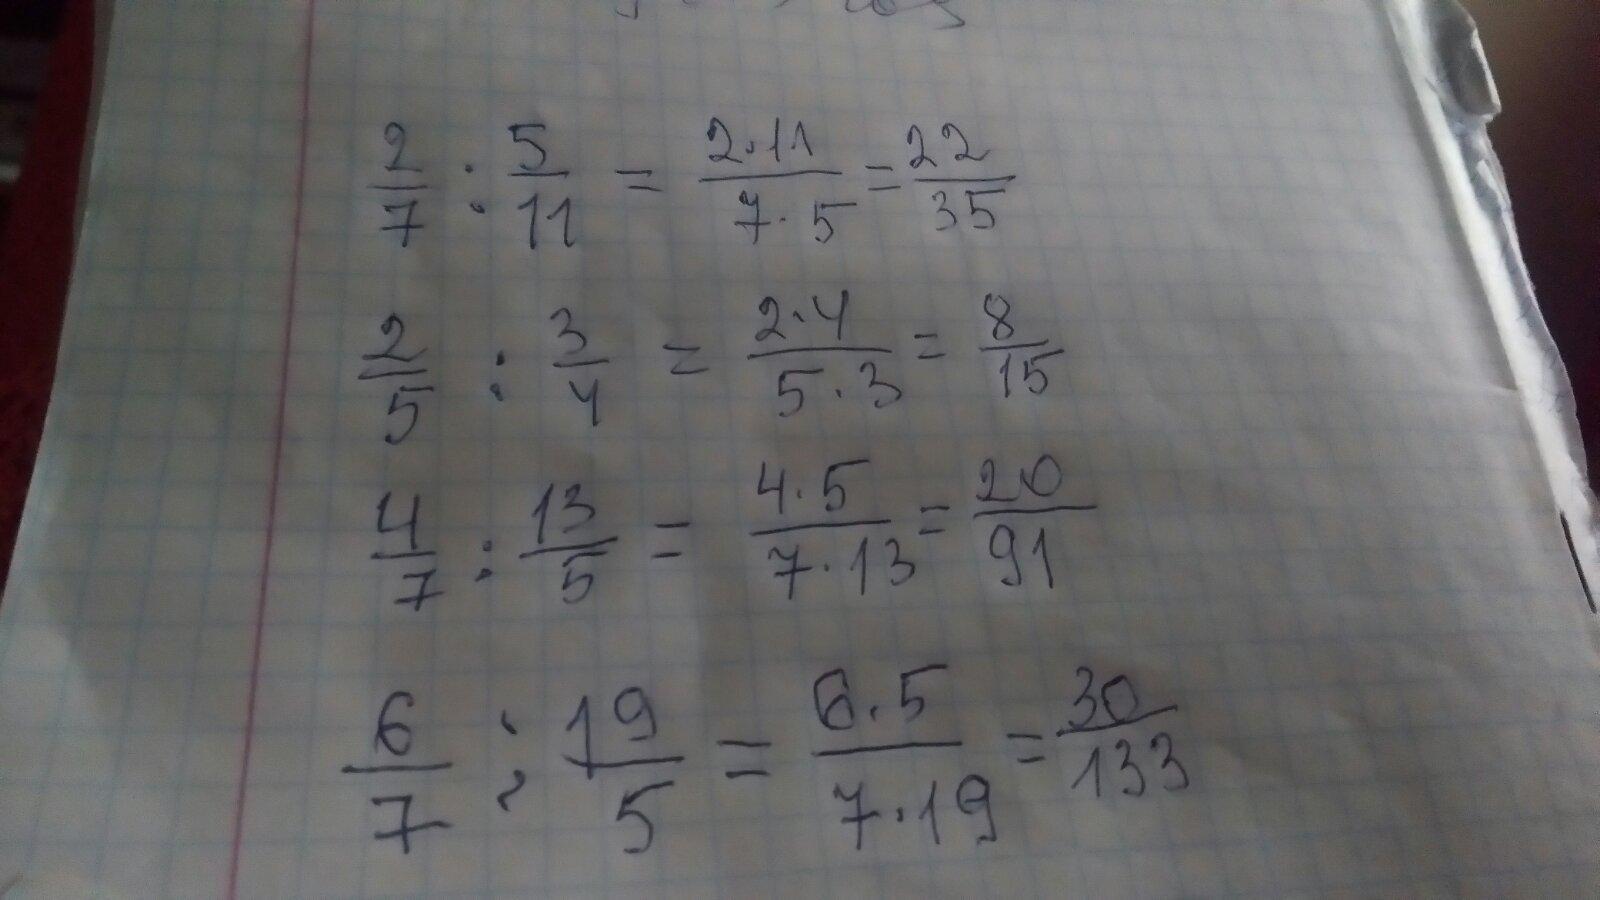 2/7 : 5/11 = 2·11/7·5 = 22/35
2/5 : 3/4 = 2·4/5·3 = 8/15
4/7 : 13/5 = 4·5/7·13 = 20/91
6/7 : 19/5 = 6·5/7·19 = 30/133